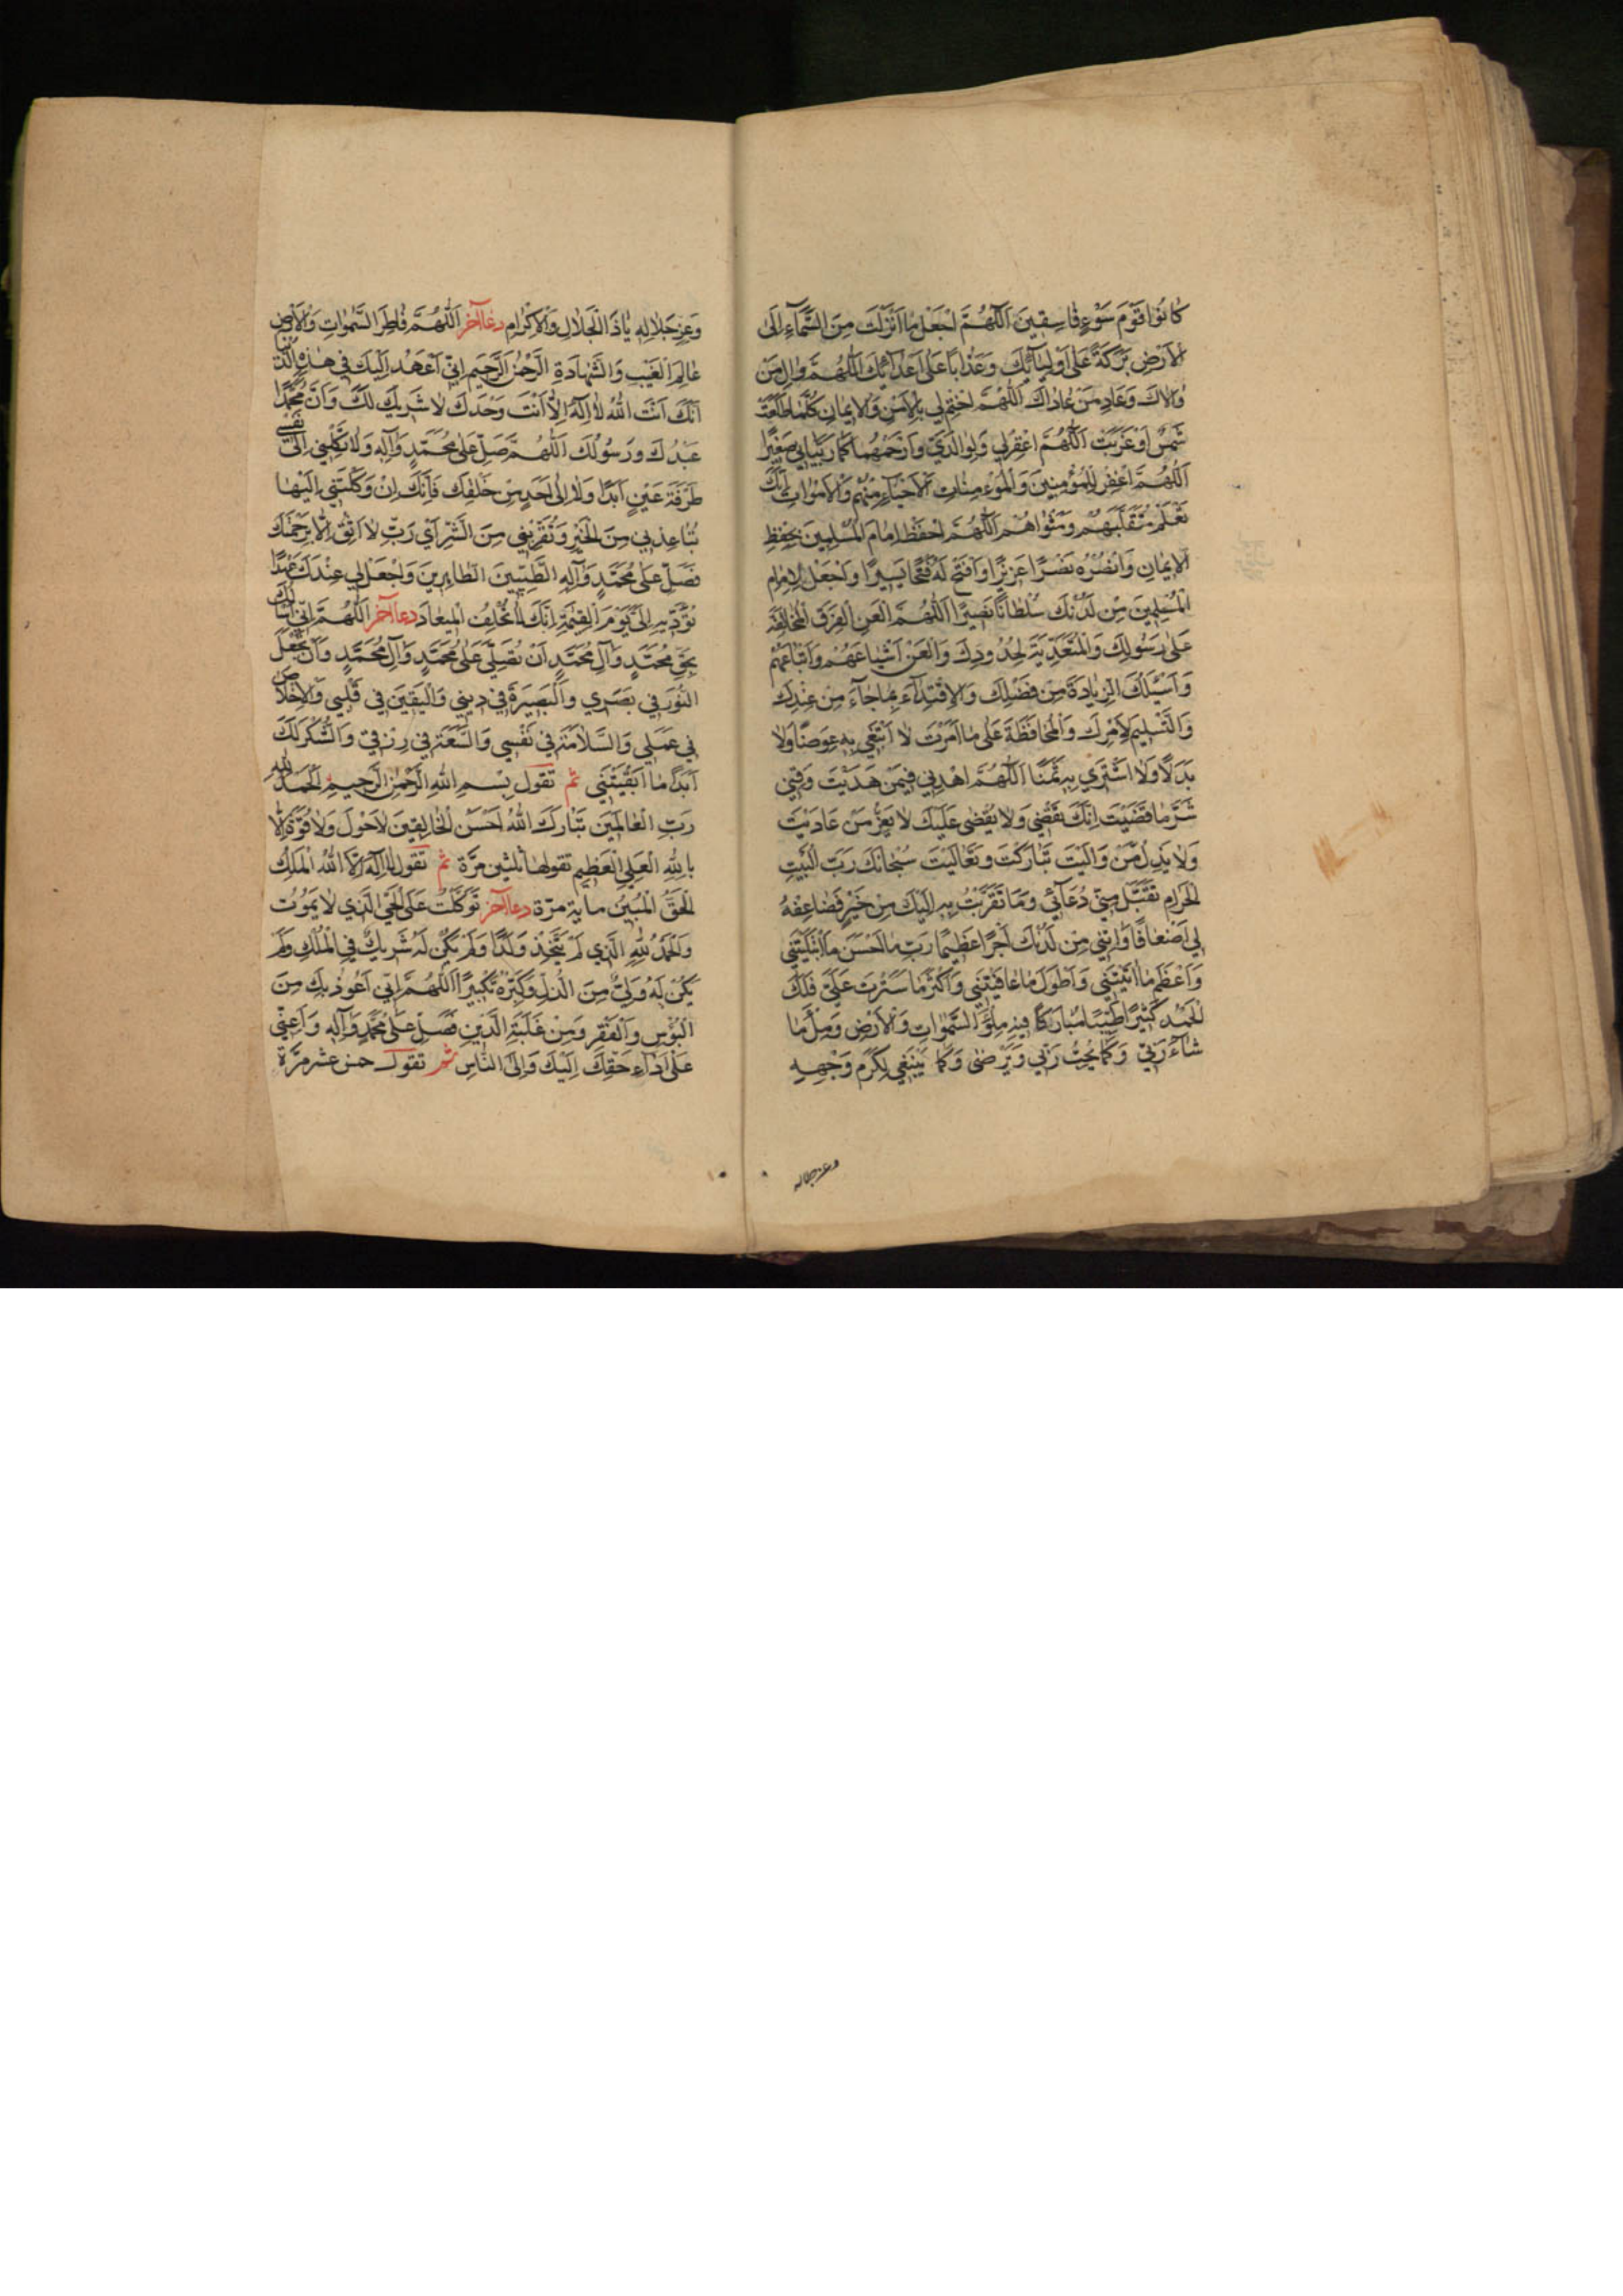 كٰانُوا قَوْمَ سَوْءٍ فٰاسِقينَ اَللّهُمَّ اجْعَلْ مٰا اَنْزَلْتَ مِنَ السَّمٰآءِ اِلَى
الْاَرْضِ بَرَكَةً عَلٰى اَوْلِيٰآئِكَ وَعَذٰابًا عَلٰى اَعْدٰآئِكَ اَللّهُمَّ وٰالِ مَنْ
وٰالاٰكَ وَعٰادِ مَنْ عٰادٰاكَ اَللّهُمَّ اخْتِمْ لي بِالْاَمْنِ وَالْايمٰانِ كُلَّمٰا طَلَعَتْ
شَمْسٌ اَوْ غَرَبَتْ اَللّهُمَّ اغْفِرْ لي وَلِوٰالِدَيَّ وَارْحَمْهُمٰا كَمٰا رَبَّيٰاني صَغيرًا
اَللّهُمَّ اغْفِرْ لِلْمُؤْمِنينَ وَالْمُؤْمِنٰاتِ الْاَحْيٰآءِ مِنْهُمْ وَالْاَمْوٰاتِ اِنَّكَ
تَعْلَمُ مُتَقَلَّبَهُمْ وَمَثْوٰاهُمْ اَللّهُمَّ احْفَظْ اِمٰامَ الْمُسْلِمينَ بِحِفْظِ
الْايمٰانِ وَانْصُرْهُ نَصْرًا عَزيزًا وَافْتَحْ لَهُ فَتْحًا يَسيرًا وَاجْعَلْ لِاِمٰامِ
الْمُسْلِمينَ مِنْ لَدُنْكَ سُلْطٰانًا نَصيرًا اَللّهُمَّ الْعَنِ الْفِرَقَ الْمُخٰالِفَةَ
عَلٰى رَسُولِكَ وَالْمُتَعَدِّيَةَ لِحُدُودِكَ وَالْعَنْ اَشْيٰاعَهُمْ وَاَتْبٰاعَهُمْ
وَاَسْئَلُكَ الزِّيٰادَةَ مِنْ فَضْلِكَ وَالْاِقْتِدٰآءَ بِمٰا جٰآءَ مِنْ عِنْدِكَ
وَالتَّسْليمَ لِاَمْرِكَ وَالْمُحٰافَظَةَ عَلٰى مٰا اَمَرْتَ لاٰ اَبْتَغي بِهِ عِوَضًا وَلاٰ
بَدَلًا وَلاٰ اَشْتَري بِهِ ثَمَنًا اَللّهُمَّ اهْدِني فيمَنْ هَدَيْتَ وَقِني
شَرَّ مٰا قَضَيْتَ اِنَّكَ تَقْضي وَلاٰ يُقْضٰى عَلَيْكَ لاٰ يَعِزُّ مَنْ عٰادَيْتَ
وَلاٰ يَذِلُّ مَنْ وٰالَيْتَ تَبٰارَكْتَ وَتَعٰالَيْتَ سُبْحٰانَكَ رَبَّ الْبَيْتِ
الْحَرٰامِ تَقَبَّلْ مِنّي دُعٰآئي وَمٰا تَقَرَّبْتُ بِهِ اِلَيْكَ مِنْ خَيْرٍ فَضٰاعِفْهُ
لي اَضْعٰافًا وَاٰتِني مِنْ لَدُنْكَ اَجْرًا عَظيمًا رَبِّ مٰا اَحْسَنَ مٰا ابْتَلَيْتَني
وَاَعْظَمَ مٰا اٰتَيْتَني وَاَطْوَلَ مٰا عٰافَيْتَني وَاَكْثَرَ مٰا سَتَرْتَ عَلَيَّ فَلَكَ
الْحَمْدُ كَثيرًا طَيِّبًا مُبٰارَكًا فيهِ مِلْؤَ السَّمٰوٰاتِ وَالْاَرْضِ وَمِلْأَ مٰا
شٰآءَ رَبّي وَكَمٰا يُحِبُّ رَبّي وَيَرْضٰى وَكَمٰا يَنْبَغي لِكَرَمِ وَجْهِهِ
وعز جلاله
وَعِزِّ جَلاٰلِهِ يٰا ذَا الْجَلاٰلِ وَالْاِكْرٰامِ دعآء آخر اَللّهُمَّ فٰاطِرَ السَّمٰوٰاتِ وَالْاَرْضِ
عٰالِمَ الْغَيْبِ وَالشَّهٰادَةِ الرَّحْمٰنُ الرَّحيمُ اِنّي اَعْهَدُ اِلَيْكَ في هٰذِهِ الدُّنْيٰا
اَنَّكَ اَنْتَ اللّٰهُ لاٰ اِلٰهَ اِلاّٰ اَنْتَ وَحْدَكَ لاٰ شَريكَ لَكَ وَاَنَّ مُحَمَّدًا
عَبْدُكَ وَرَسُولُكَ اَللّهُمَّ صَلِّ عَلٰى مُحَمَّدٍ وَاٰلِهِ وَلاٰ تَكِلْني اِلٰى نَفْسي
طَرْفَةَ عَيْنٍ اَبَدًا وَلاٰ اِلٰى اَحَدٍ مِنْ خَلْقِكَ فَاِنَّكَ اِنْ وَكَلْتَني اِلَيْهٰا
تُبٰاعِدْني مِنَ الْخَيْرِ وَتُقَرِّبْني مِنَ الشَّرِّ اَيْ رَبِّ لاٰ اَثِقُ اِلاّٰ بِرَحْمَتِكَ
فَصَلِّ عَلٰى مُحَمَّدٍ وَاٰلِهِ الطَّيِّبينَ الطّٰاهِرينَ وَاجْعَلْ لي عِنْدَكَ عَهْدًا
تُؤَدّيهِ اِلَيَّ يَوْمَ الْقِيٰمَةِ اِنَّكَ لاٰ تُخْلِفُ الْميعٰادَ دعآء آخر اَللّهُمَّ اِنّي اَسْئَلُكَ
بِحَقِّ مُحَمَّدٍ وَاٰلِ مُحَمَّدٍ اَنْ تُصَلِّيَ عَلٰى مُحَمَّدٍ وَاٰلِ مُحَمَّدٍ وَاَنْ تَجْعَلَ
النُّورَ في بَصَري وَالْبَصيرَةَ في ديني وَالْيَقينَ في قَلْبي وَالْاِخْلاٰصَ
في عَمَلي وَالسَّلاٰمَةَ في نَفْسي وَالسَّعَةَ في رِزْقي وَالشُّكْرَ لَكَ
اَبَدًا مٰا اَبْقَيْتَني ثم تقول بِسْمِ اللّٰهِ الرَّحْمٰنِ الرَّحيمِ اَلْحَمْدُ لِلّٰهِ
رَبِّ الْعٰالَمينَ تَبٰارَكَ اللّٰهُ اَحْسَنُ الْخٰالِقينَ لاٰ حَوْلَ وَلاٰ قُوَّةَ اِلاّٰ
بِاللّٰهِ الْعَلِيِّ الْعَظيمِ تقولها ثلثين مرّة ثم تقول لاٰ اِلٰهَ اِلاَّ اللّٰهُ الْمَلِكُ
الْحَقُّ الْمُبينُ مأية مرّة دعآء آخر تَوَكَّلْتُ عَلَى الْحَيِّ الَّذي لاٰ يَمُوتُ
وَالْحَمْدُ لِلّٰهِ الَّذي لَمْ يَتَّخِذْ وَلَدًا وَلَمْ يَكُنْ لَهُ شَريكٌ فِي الْمُلْكِ وَلَمْ
يَكُنْ لَهُ وَلِيٌّ مِنَ الذُّلِّ وَكَبِّرْهُ تَكْبيرًا اَللّهُمَّ اِنّي اَعُوذُ بِكَ مِنَ
الْبُؤْسِ وَالْفَقْرِ وَمِنْ غَلَبَةِ الدَّيْنِ فَصَلِّ عَلٰى مُحَمَّدٍ وَاٰلِهِ وَاَعِنّي
عَلٰى اَدٰآءِ حَقِّكَ اِلَيْكَ وَاِلَى النّٰاسِ ثم تقول خمس عشر مرّة